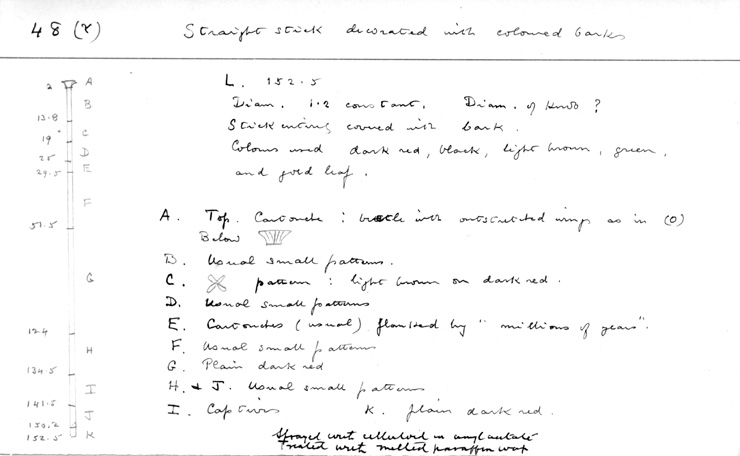 48 (r) Straight stick decorated with coloured barks
L. 152.5
Diam. 1.2 constant. Diam. of knob ?
Stick entirely covered with bark.
Colours used dark red, black, light brown, green,
and gold leaf.
A. Top. Cartouche : beetle with outstretched wings as in (O)
Below
B. Usual small patterns.
C. pattern : light brown on dark red.
D. Usual small patterns
E. Cartouches (usual) flanked by "millions of years".
F. Usual small patterns
G. Plain dark red
H. & J. Usual small patterns
I. Captives K. plain dark red.
Sprayed with celluloid in amyl acetate
Treated with melted paraffin wax
2 A
B
13.8
C
19
D
25
E
29.5
F
51.5
G
124
H
134.5
I
141.5
J
150.2
152.5 K